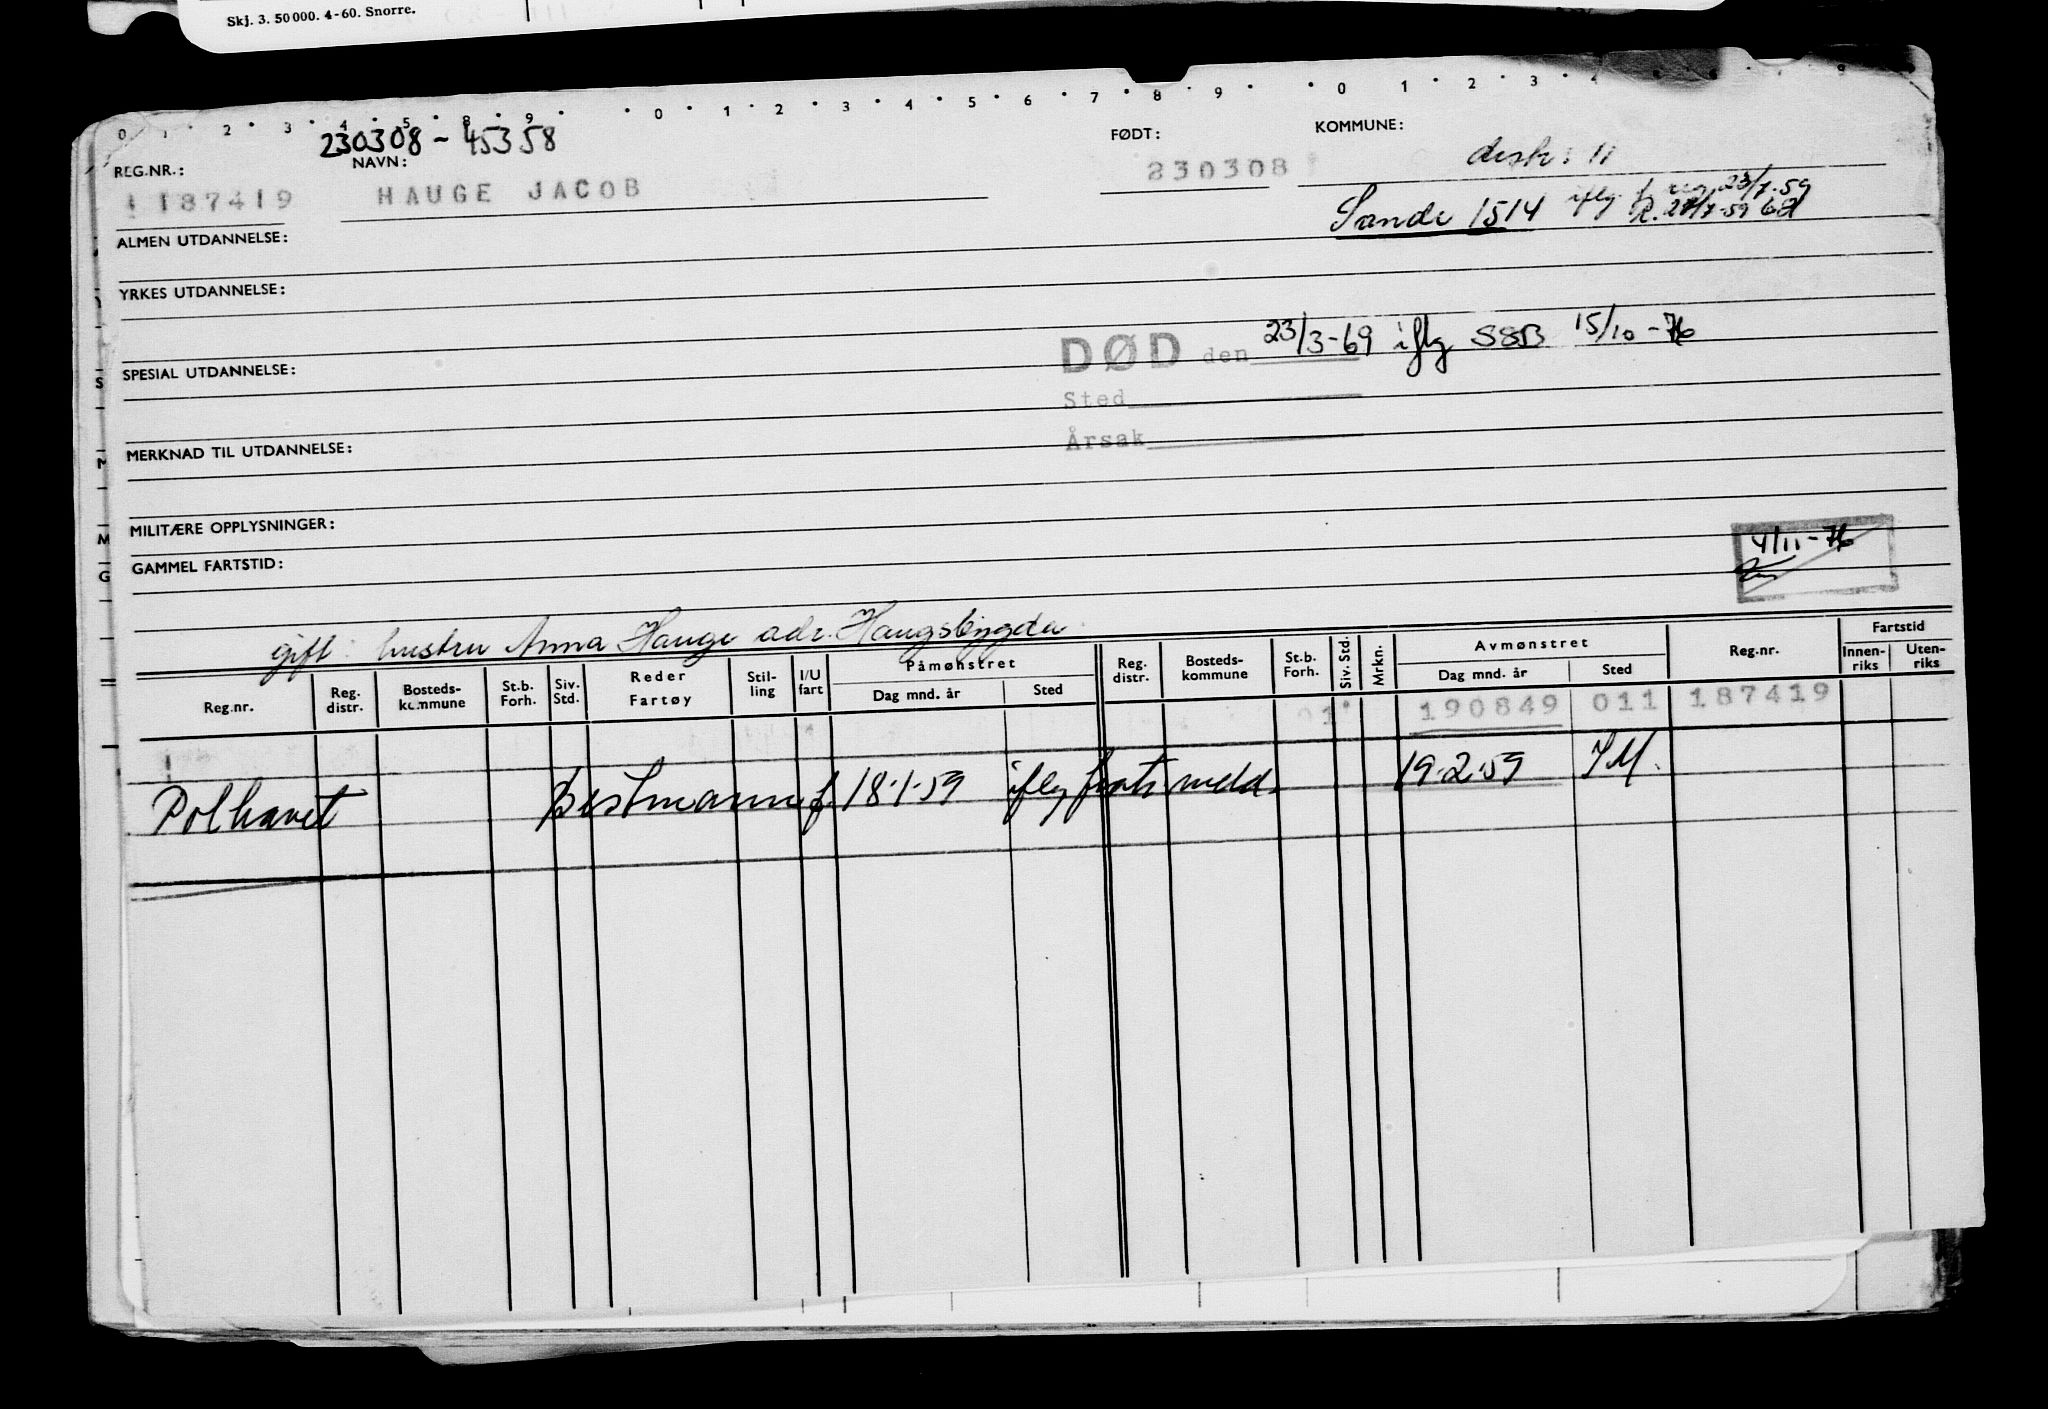 Skj. 3. 50 000. 4-60. Snorre.
0 1 2 3 4 5 8 9 0 1 2 3 4 5 6 7 8 9 0 1 2 3 4
230308 - 45358
REG.NR.: NAVN: FØDT: KOMMUNE:
187419 HAUGE JACOB 230308 distr. 11
Sande 1514 iflg. reg. 23/7-59
ALMEN UTDANNELSE:
YRKES UTDANNELSE:
DØD den 23/3-69 iflg SSB 15/10-76
SPESIAL UTDANNELSE:
Sted
Årsak
MERKNAD TIL UTDANNELSE:
MILITÆRE OPPLYSNINGER:
4/11-76
GAMMEL FARTSTID:
gift: hustru Anna Hauge adr. Haugsbygda
Reg.nr. Reg. distr. Bosteds-kommune St.b. Forh. Siv. Std. Reder Fartøy Stil-ling I/U fart Påmønstret Dag mnd. år Sted Reg. distr. Bosteds-kommune St.b. Forh. Siv. Std. Mrkn. Avmønstret Dag mnd. år Sted Reg.nr. Fartstid Innen-riks Uten-riks
01 190849 011 187419
Polhavet Bestmann f. 18-1-59 iflg frats meld. 19-2-59 IM.